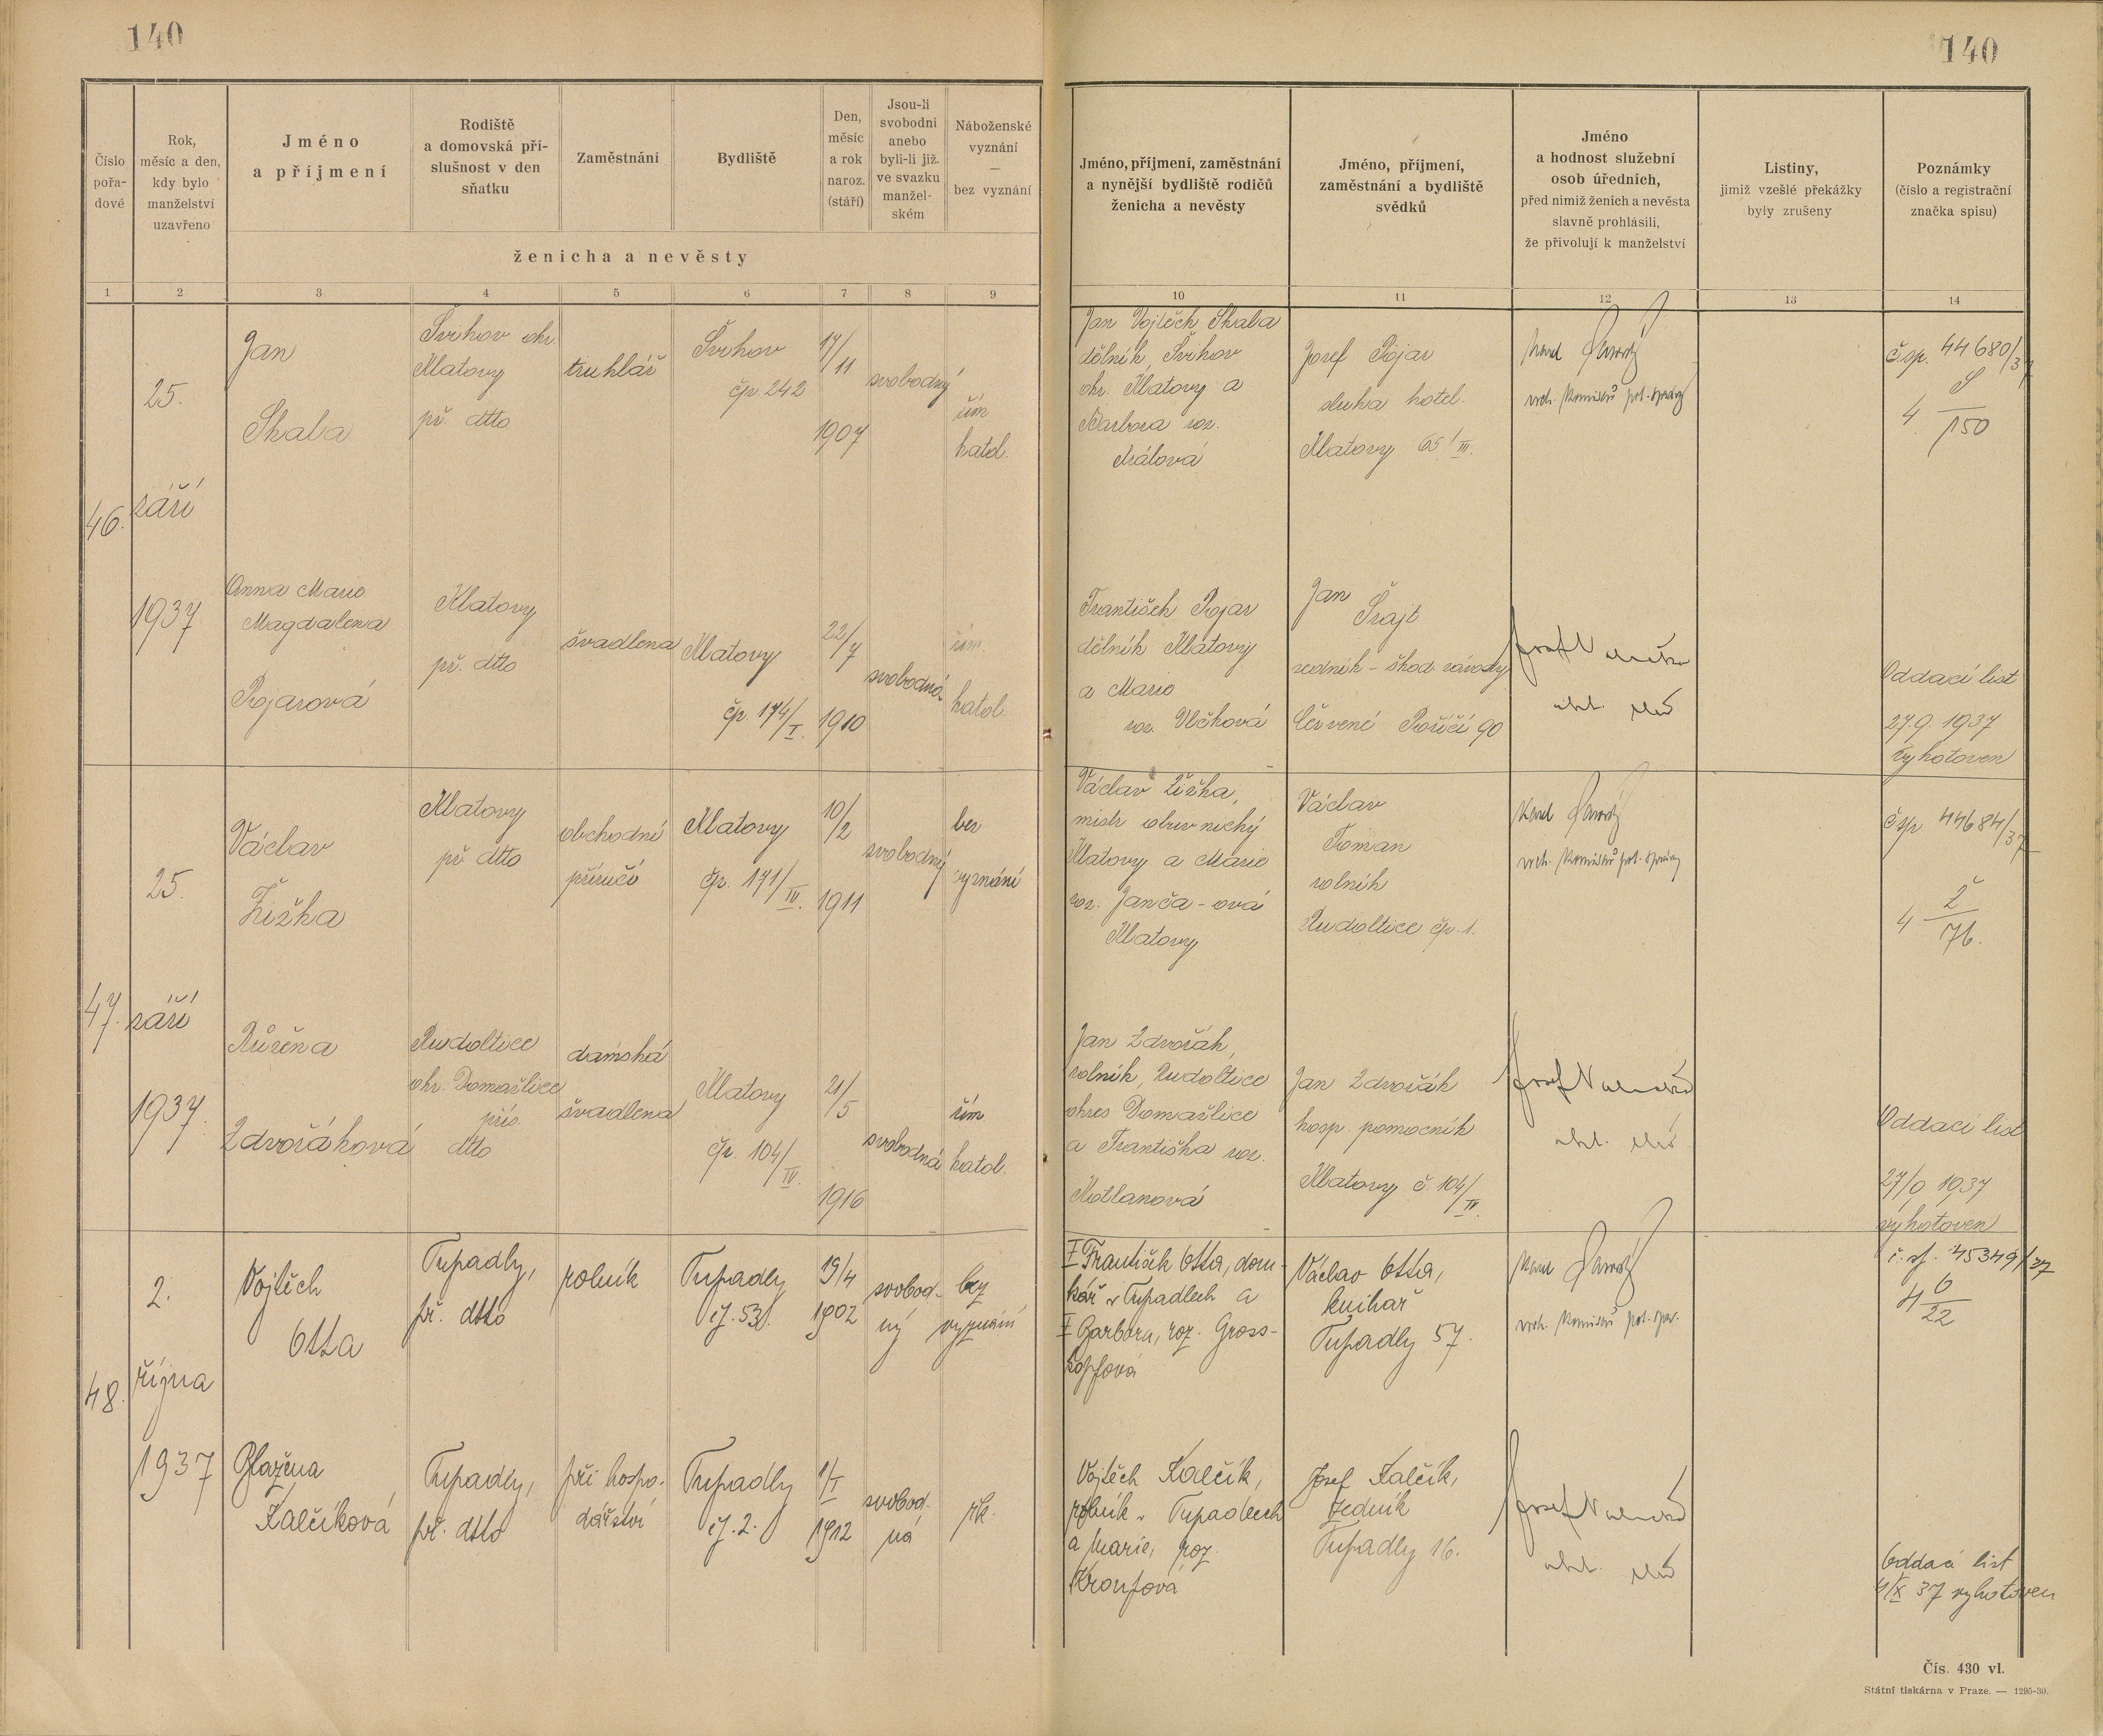 140
140
Číslo pořa- dové
Rok, měsíc a den, kdy bylo manželství uzavřeno
Jméno a příjmení
Rodiště a domovská pří- slušnost v den sňatku
Zaměstnání
Bydliště
Den, měsíc a rok naroz. (stáří)
Jsou-li svobodni anebo byli-li již ve svazku manžel- ském
Náboženské vyznání — bez vyznání
ženicha a nevěsty
Jméno, příjmení, zaměstnání a nynější bydliště rodičů ženicha a nevěsty
Jméno, příjmení, zaměstnání a bydliště svědků
Jméno a hodnost služební osob úředních, před nimiž ženich a nevěsta slavně prohlásili, že přivolují k manželství
Listiny, jimiž vzešlé překážky byly zrušeny
Poznámky (číslo a registrační značka spisu)
1 2 3 4 5 6 7 8 9 10 11 12 13 14
46.
25.
září
1937
Jan
Skala
Švihov okr.
Klatovy
př. dtto
truhlář
Švihov
čp. 242
17/11
1907
svobodný
řím.
katol.
Jan Vojtěch Skala
dělník, Švihov
okr. Klatovy a
Barbora roz.
Králová
Josef Rojar
sluha hotel.
Klatovy 65/III.
Karel
vrch. komisař pol. správy
č. sp. 44680/37
4 S/150
Anna Marie
Magdalena
Rojarová
Klatovy
př. dtto
švadlena
Klatovy
čp. 174/I.
22/7
1910
svobodná
řím.
katol.
František Rojar
dělník Klatovy
a Marie
roz. Vlčková
Jan
Šrajt
zedník - škod. závody
Červené Poříčí 90
Josef
Oddací list
27.9. 1937
vyhotoven
47.
25.
září
1937.
Václav
Žižka
Klatovy
př. dtto
obchodní
příručí
Klatovy
čp. 171/IV.
10/2
1911
svobodný
bez
vyznání
Václav Žižka,
mistr obuvnický
Klatovy a Marie
roz. Janča-ová
Klatovy
Václav
Toman
rolník
Rudoltice čp. 1.
Karel
vrch. komisař pol. správy
č sp 44684/37
4 Ž/76.
Růžena
Zdvořáková
Rudoltice
okr. Domažlice
přís.
dtto
damská
švadlena
Klatovy
čp. 104/IV.
21/5
1916
svobodná
řím.
katol.
Jan Zdvořák,
rolník, Rudoltice
okres Domažlice
a Františka roz.
Kotlanová
Jan Zdvořák
hosp. pomocník
Klatovy č. 104/IV.
Josef
Oddací list
27/9 1937
vyhotoven
48.
2.
října
1937
Vojtěch
Otta
Tupadly,
př. dtto
rolník
Tupadly
čp. 53.
19/4
1902
svobod-
ný
bez
vyznání
† František Otta, dom-
kář v Tupadlech a
† Barbora, roz. Gross-
kopfová
Václav Otta,
knihař
Tupadly 57.
Karel
vrch. komisař pol. spr.
č. sp. 45349/37
4 O/22
Blažena
Kalčíková
Tupadly,
př. dtto
při hospo-
dářství
Tupadly
čp. 2.
1/I
1912
svobod-
ná
řk.
Vojtěch Kalčík,
rolník v Tupadlech
a Marie, roz.
Kroupová
Josef Kalčík,
zedník
Tupadly 16.
Josef
Oddací list
4/X 37 vyhotoven
Čís. 430 vl.
Státní tiskárna v Praze. — 1295-30.